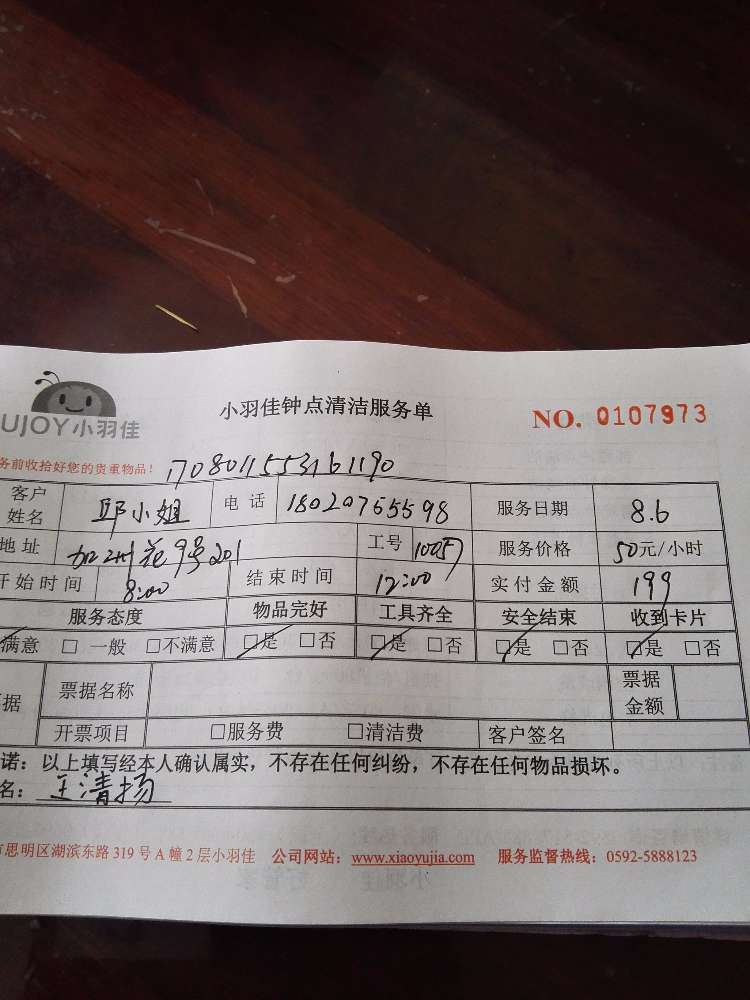 小羽佳钟点清洁服务单
NO. 0107973
UJOY小羽佳
务前收拾好您的贵重物品! 1708011553161190
客户姓名 邱小姐 电话 18020765598 服务日期 8.6
地址 加州花9号201 工号 服务价格 50元/小时
开始时间 8:00 结束时间 12:00 实付金额 199
服务态度 物品完好 工具齐全 安全结束 收到卡片
满意 □ 一般 □不满意 □是 □否 □是 □否 □是 □否 □是 □否
据 票据名称 票据金额
开票项目 □服务费 □清洁费 客户签名
诺：以上填写经本人确认属实，不存在任何纠纷，不存在任何物品损坏。
名：王清扬
市思明区湖滨东路 319 号 A 幢 2 层小羽佳 公司网站：www.xiaoyujia.com 服务监督热线：0592-5888123